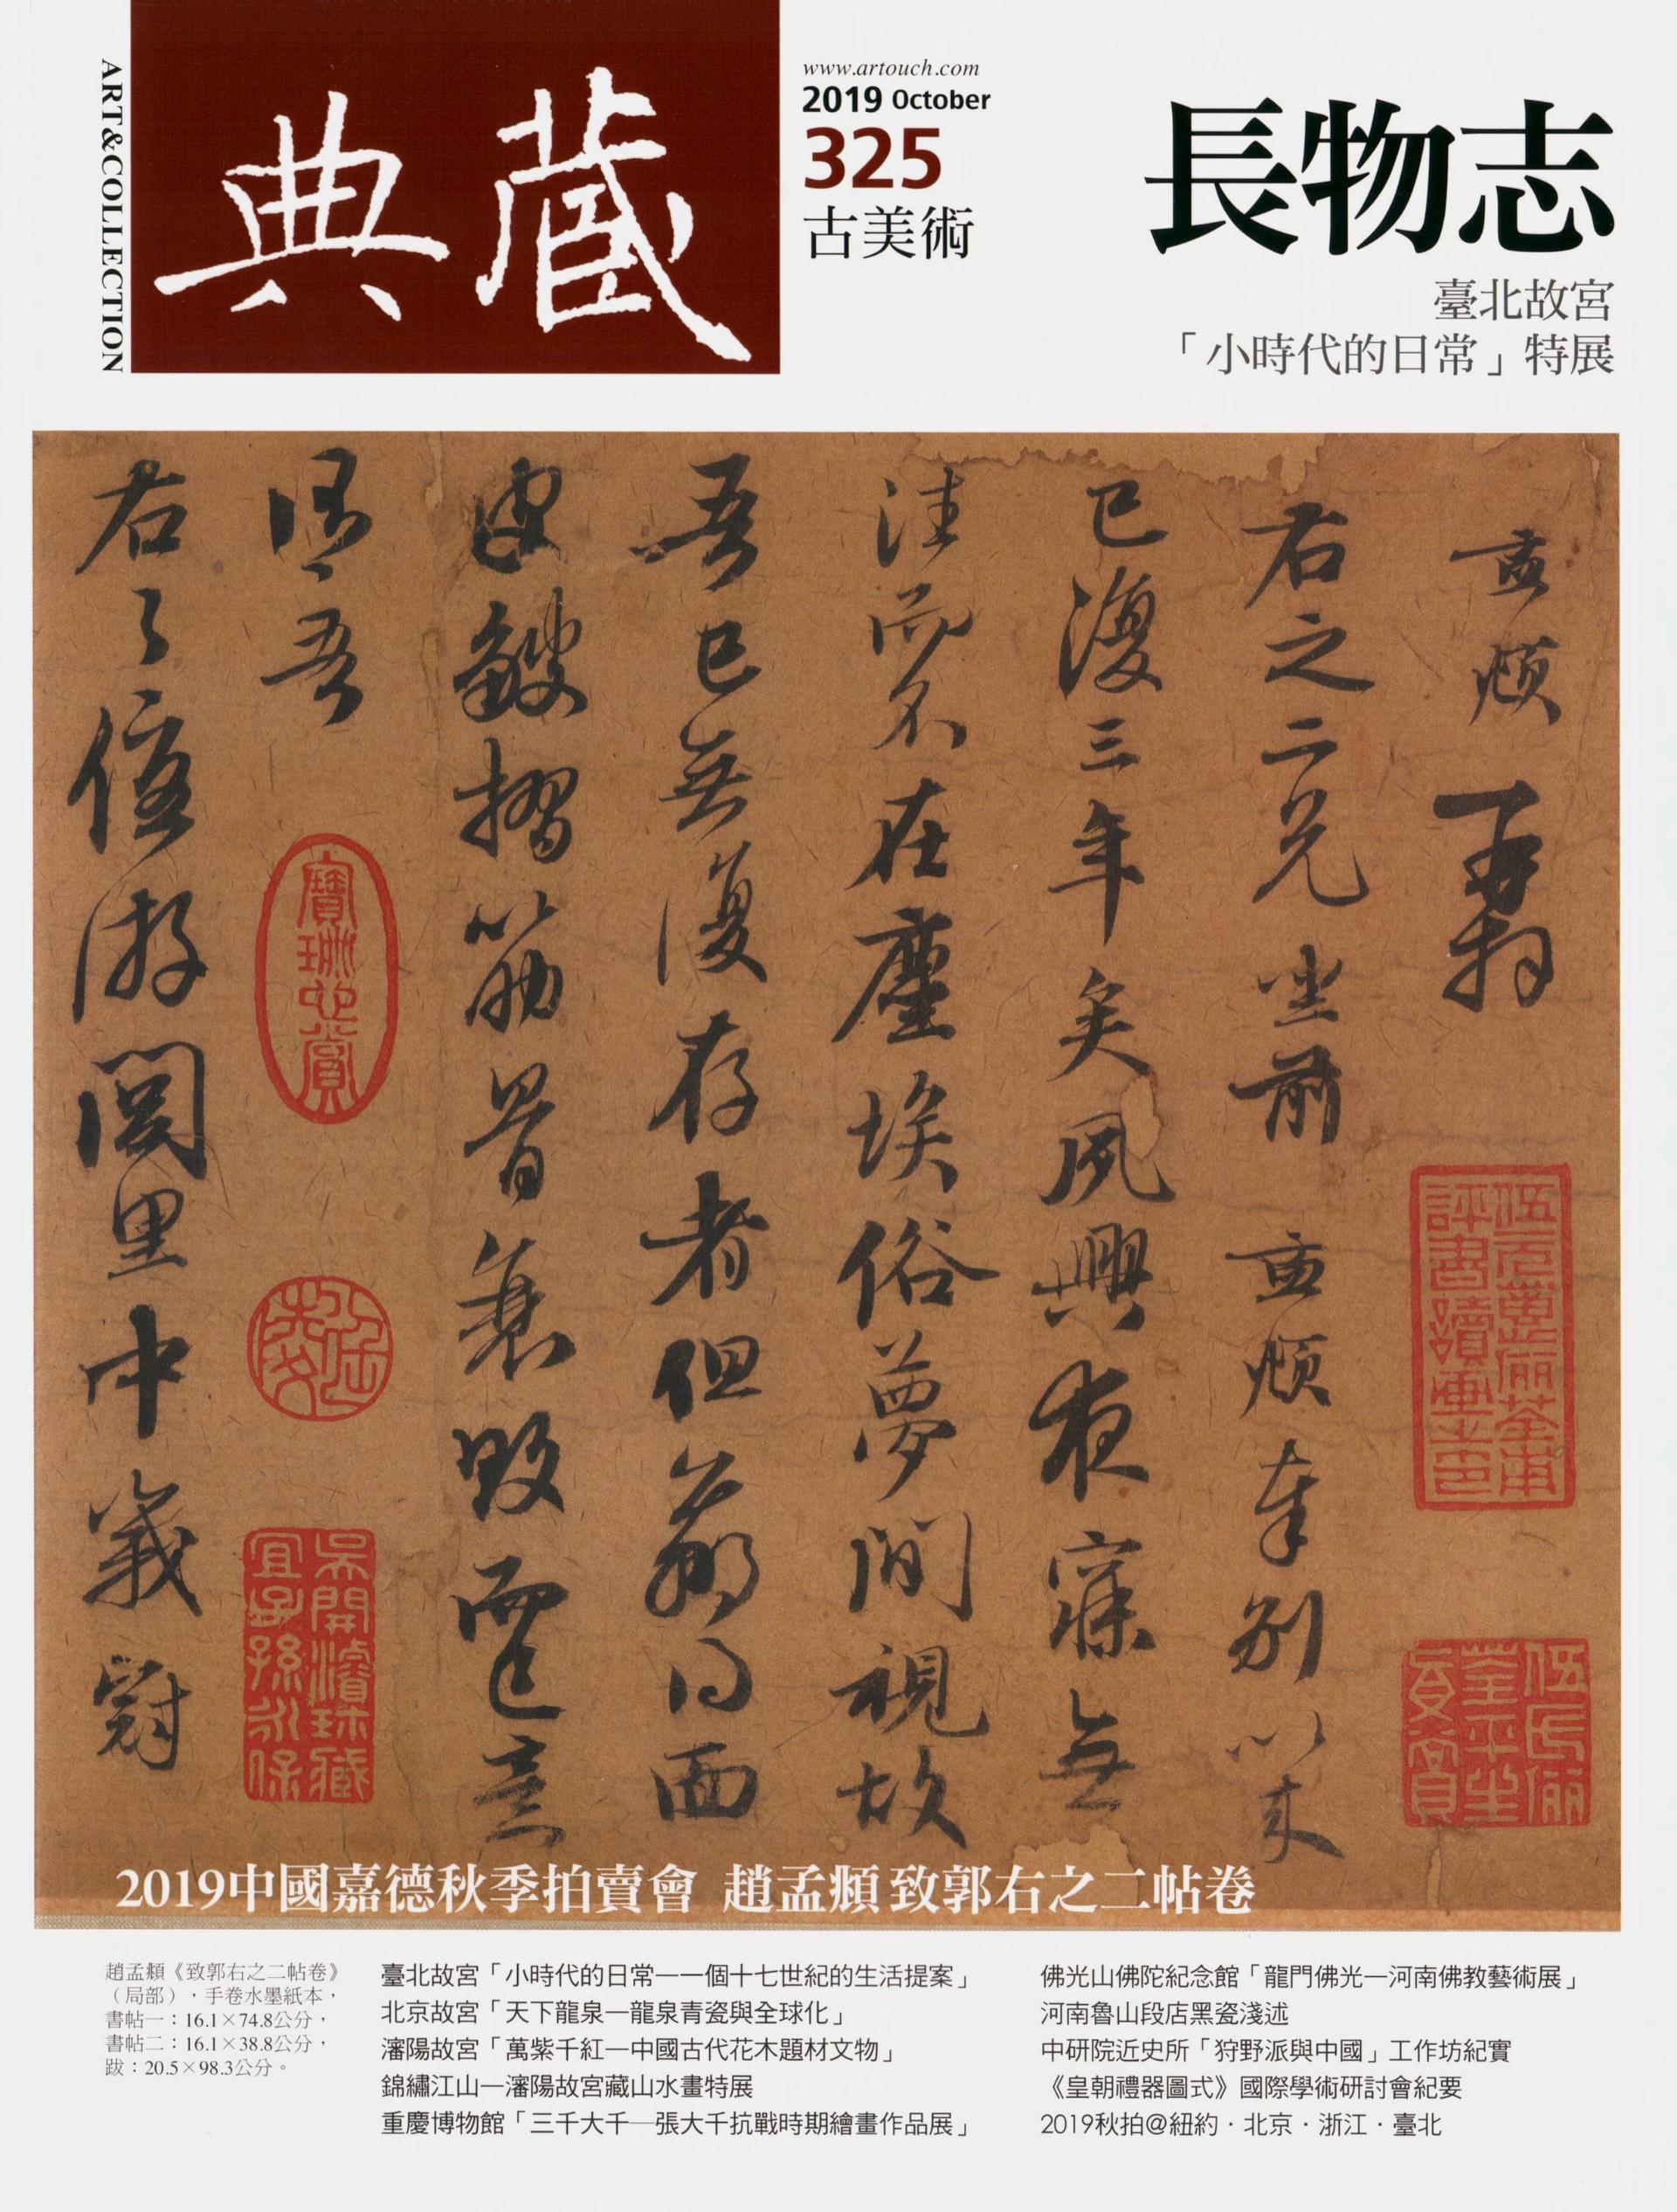 ART&COLLECTION
典藏
www.artouch.com
2019 October
325
古美術
長物志
臺北故宮
「小時代的日常」特展
孟頫再拜
右之二兄坐前孟頫奉別以來
已復三年矣夙興夜寐無
往而不在塵埃俗夢間視故
吾已無復存者但蒼顏白面
皮皺摺筋骨衰敗而已意
謂吾
右之優游閭里中峩冠
2019中國嘉德秋季拍賣會 趙孟頫 致郭右之二帖卷
趙孟頫《致郭右之二帖卷》
（局部），手卷水墨紙本，
書帖一：16.1×74.8公分，
書帖二：16.1×38.8公分，
跋：20.5×98.3公分。
臺北故宮「小時代的日常—一個十七世紀的生活提案」
北京故宮「天下龍泉—龍泉青瓷與全球化」
瀋陽故宮「萬紫千紅—中國古代花木題材文物」
錦繡江山—瀋陽故宮藏山水畫特展
重慶博物館「三千大千—張大千抗戰時期繪畫作品展」
佛光山佛陀紀念館「龍門佛光—河南佛教藝術展」
河南魯山段店黑瓷淺述
中研院近史所「狩野派與中國」工作坊紀實
《皇朝禮器圖式》國際學術研討會紀要
2019秋拍@紐約·北京·浙江·臺北